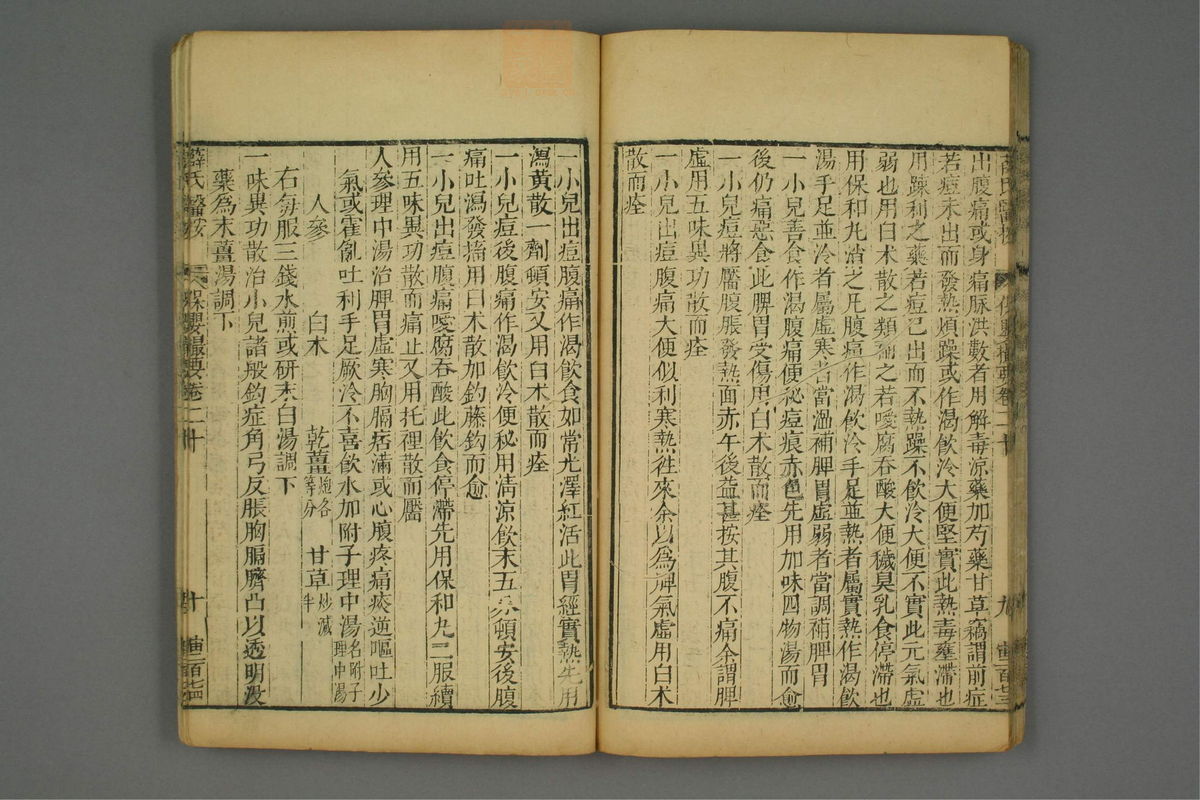 出腹痛或身痛脉洪數者用解毒凉藥加芍藥甘草竊謂前症
若痘未出而發熱煩躁或作渴飲冷大便堅實此熱毒壅滯也
用踈利之藥若痘已出而不熱躁不飲冷大便不實此元氣虛
弱也用白术散之類補之若噯腐吞酸大便穢臭乳食停滯也
用保和丸消之凡腹痛作渴飲冷手足並熱者屬實熱作渴飲
湯手足並冷者屬虛寒當溫補脾胃虛弱者當調補脾胃
一小兒善食作渴腹痛便秘痘痕赤色先用加味四物湯而愈
後仍痛惡食此脾胃受傷用白术散而痊
一小兒痘將靨腹脹發熱面赤午後益甚按其腹不痛余謂脾
虛用五味異功散而痊
一小兒出痘腹痛大便似利寒熱徃來余以爲脾氣虛用白术
散而痊
九
一小兒出痘腹痛作渴飲食如常光澤紅活此胃經實熱先用
瀉黃散一劑頓安又用白术散而痊
一小兒痘後腹痛作渴飲冷便秘用清凉飲末五分頓安後腹
痛吐瀉發搐用白术散加鈎藤鈎而愈
一小兒出痘腹痛噯腐吞酸此飲食停滯先用保和丸二服續
用五味異功散而痛止又用托裡散而靨
人參理中湯治脾胃虛寒胸膈痞滿或心腹疼痛痰逆嘔吐少
氣或霍亂吐利手足厥冷不喜飲水加附子理中湯名附子理中湯
人參 白术 乾薑炮各等分 甘草炒減半
右每服三錢水煎或研末白湯調下
一味異功散治小兒諸般鈎症角弓反脹胸膈臍凸以透明没
藥爲末薑湯調下
薛氏醫按 保嬰撮要卷二十 十